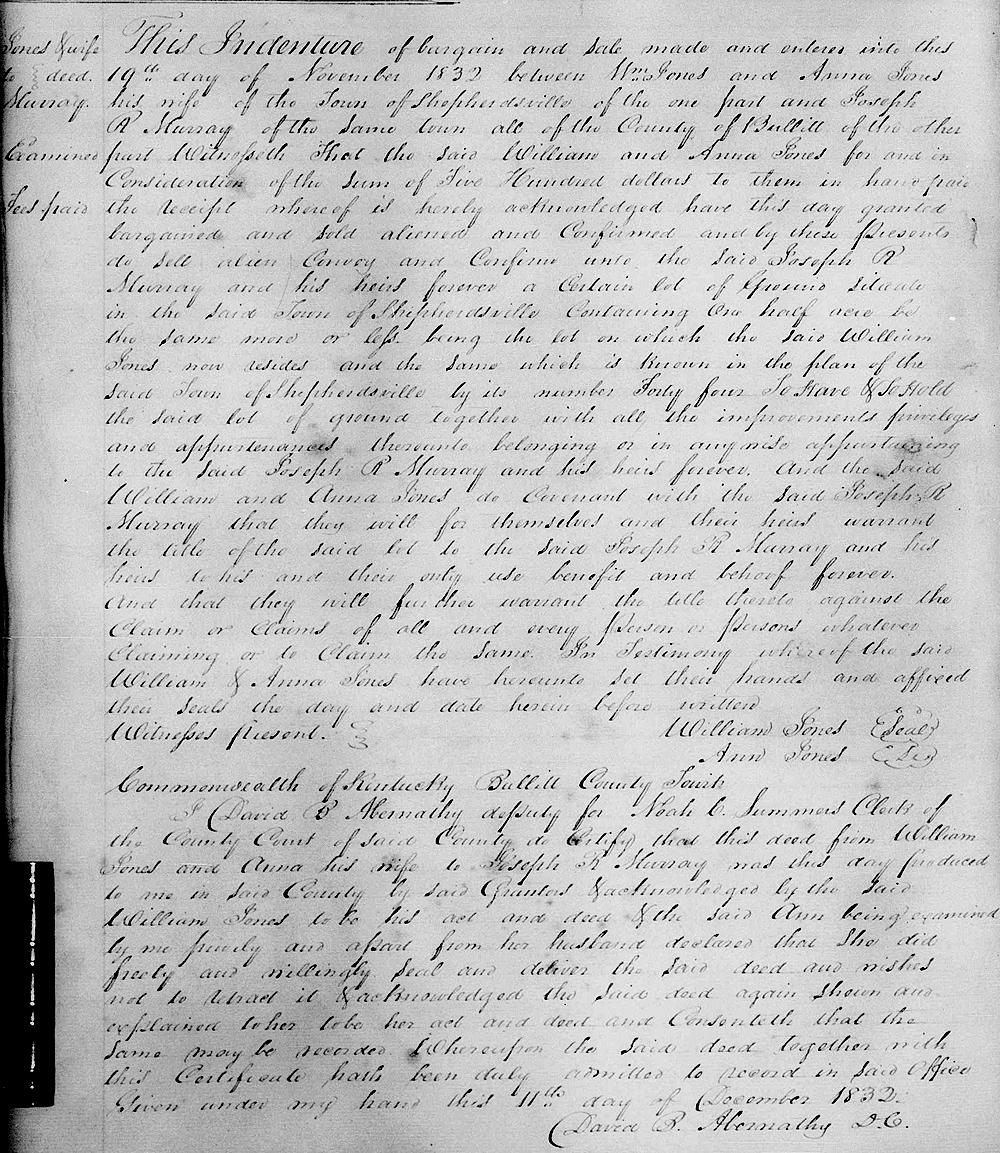 Jones & wife
to } deed.
Murray.
Examined
Fees paid
This Indenture of bargain and sale made and entered into this
19th day of November 1832 between Wm Jones and Anna Jones
his wife of the Town of Shepherdsville of the one part and Joseph
R Murray of the same town all of the County of Bullitt of the other
part Witnesseth That the said William and Anna Jones for and in
Consideration of the sum of Five Hundred dollars to them in hand paid
the receipt whereof is hereby acknowledged have this day granted
bargained and sold aliened and Confirmed and by these presents
do sell alien Convey and Confirm unto the said Joseph R
Murray and his heirs forever a Certain lot of Ground situate
in the said Town of Shepherdsville Containing One half acre be
the same more or less being the lot on which the said William
Jones now resides and the same which is Known in the plan of the
said Town of Shepherdsville by its number Forty four To Have & To Hold
the said lot of ground together with all the improvements privileges
and appurtenances thereunto belonging or in any wise appertaining
to the said Joseph R Murray and his heirs forever. And the said
William and Anna Jones do Covenant with the said Joseph R
Murray that they will for themselves and their heirs warrant
the title of the said lot to the said Joseph R Murray and his
heirs to his and their only use benefit and behoof forever.
And that they will further warrant the title thereto against the
Claim or Claims of all and every person or persons whatever
Claiming or to Claim the same. In Testimony whereof the said
William & Anna Jones have hereunto set their hands and affixed
their seals the day and date herein before written
Witnesses present. }
William Jones {Seal}
Ann Jones
Commonwealth of Kentucky Bullitt County Towit
I David B Abernathy deputy for Noah C. Summers Clerk of
the County Court of said County do Certify that this deed from William
Jones and Anna his wife to Joseph R Murray was this day produced
to me in said County by said Grantors & acknowledged by the said
William Jones to be his act and deed & the said Ann being examined
by me privily and apart from her husband declared that she did
freely and willingly seal and deliver the said deed and wishes
not to retract it & acknowledged the said deed again shown and
explained to her to be her act and deed and Consenteth that the
same may be recorded. Whereupon the said deed together with
this Certificate hath been duly admitted to record in said Office
Given under my hand this 11th day of December 1832.
David B. Abernathy D.C.